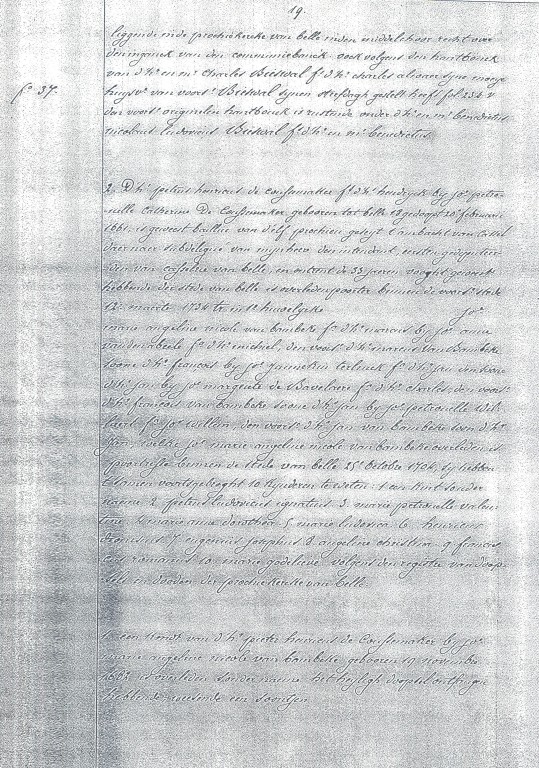 19.
liggende inde prochiekercke van belle inden middelchoor recht over
den inganck van den communiebanck. oock volgens den hantbouck
van d'hr en mr Charles Bieswal fs d'hr charles alvaer syne moeye
huysvr van voorsr Bieswal synen
fo 37.
den voorsn originelen hantbouck is rustende onder d'hr en mr benedictus
nicolaus ludovicus Bieswal fs d'hr en mr benedictus
2. D'hr petrus henricus de Coussemaker fs d'hr hendryck by jor petro-
nelle Catherine De Coussemaker gebooren tot belle 18 gedoopt 20 februari
1661, is geweest bailliu van d'elf prochien geseyt t'ambacht van Cassel
daer naer subdelegue van mynheere den intendent, eersten gedeputeer-
den van casselrie van belle, en ontrent de 33 jaeren vooght geweest
hebbende der stede van belle is overleden poorter binnen de voorsn stede
12 maerte 1734 tr in 1e huwelycke jor
marie angeline nicole van bambeke fa d'hr marcus by jor anna
vanden abeele fa d'hr michiel, den voorsn d'hr marcus van Bambeke
soone d'hr francois by jor jannekin terlinck fa d'hr jan den soone
d'hr jan by jor margriete de Bavelaere fa d'hr charles, den voorsn
d'hr francois van bambeke soone d'hr jan by jor petronelle
fa jor willem, den voorsn d'hr jan van bambeke son d'hr
jan, welcke jor marie angeline nicole van bambeke overleden is
poorterse binnen de stede van belle 25 octobre 1704, sy hebben
t'samen voortsgebrocht 10 kynderen te weten: 1 een kint sonder
naeme 2 petrus ludovicus ignatius 3 marie petronelle valen-
tine 4 marie anna dorothea 5 marie ludovica 6 henricus
dionisius 7 eugenius josephus 8 angeline christina 9 francis-
cus romanus 10 marie godelieve volgens den register van doop-
sels en dooden der prochiekercke van belle
1o een kindt van d'hr pieter henricus de Coussemaker by jor
marie angeline nicole van bambeke gebooren 19 november
overleden sonder naeme het heyligh doopsel ontfangen
hebbende wesende een soontjen